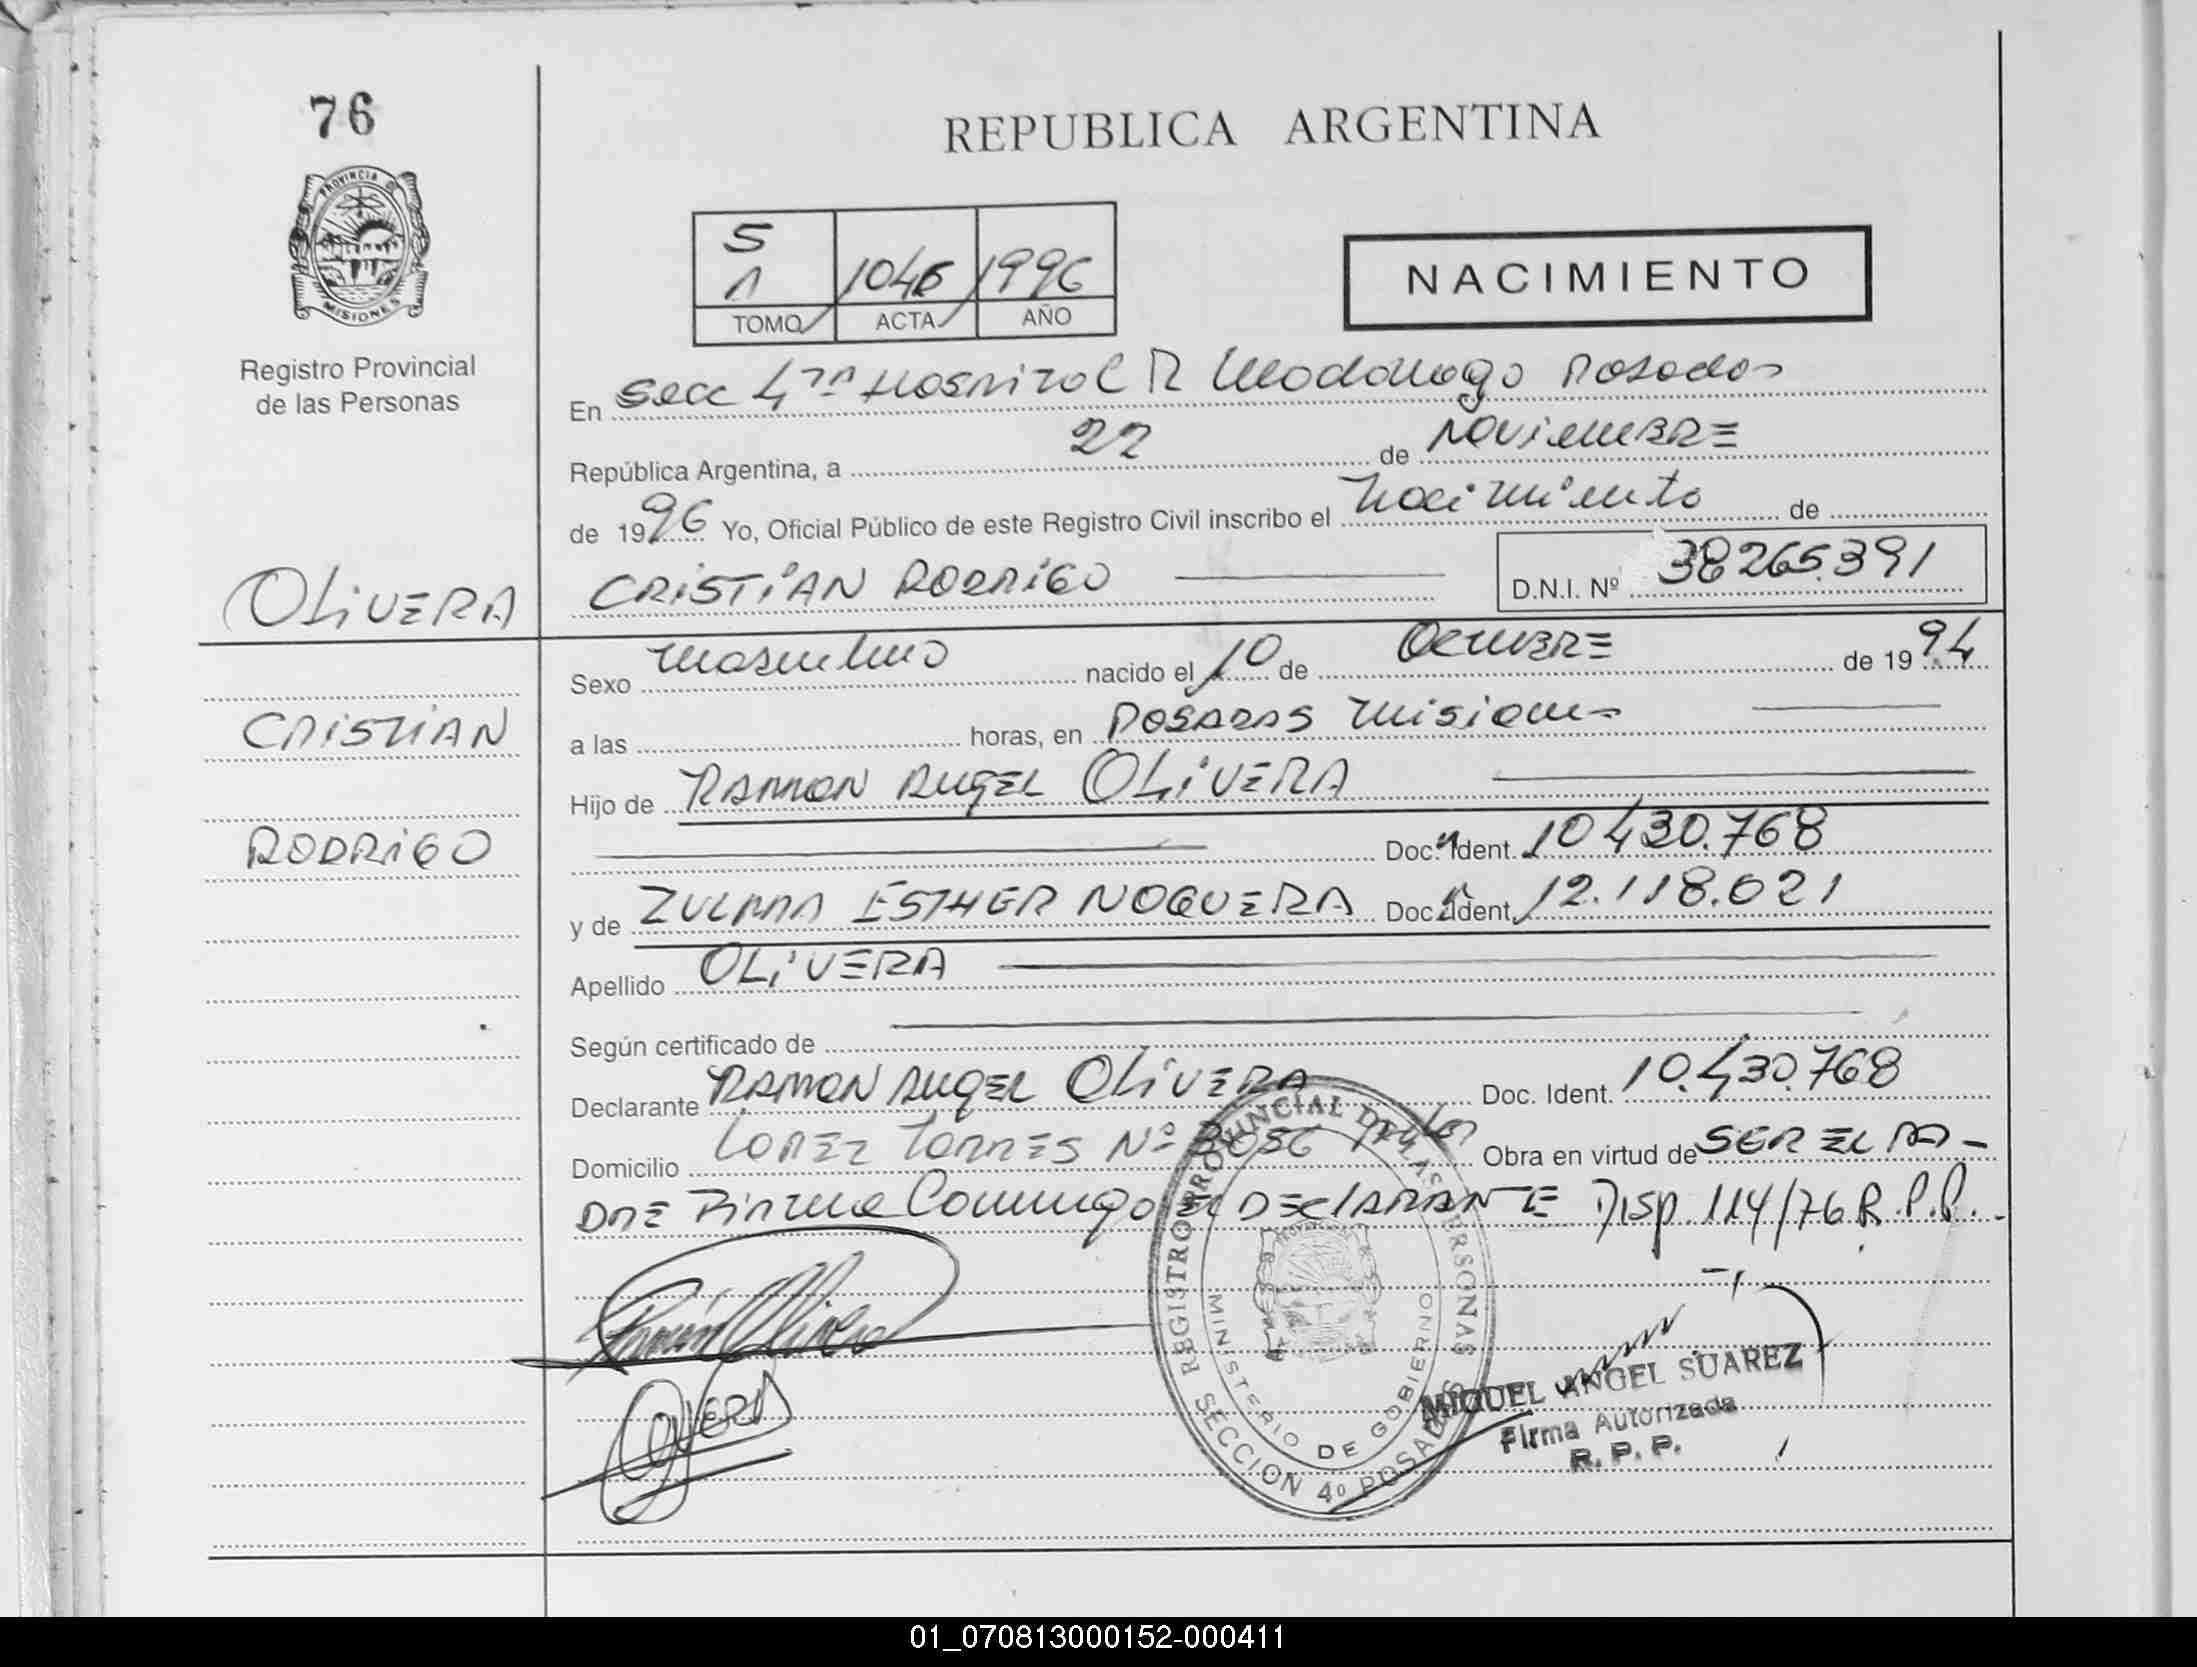 76
REPUBLICA ARGENTINA
PROVINCIA DE
MISIONES
Registro Provincial
de las Personas
5
1 1046 1996
TOMO ACTA AÑO
NACIMIENTO
En Secc 4ta Hospital R Madariaga Posadas
República Argentina, a 22 de Noviembre
de 1996 Yo, Oficial Público de este Registro Civil inscribo el nacimiento de
OLIVERA
CRISTIAN RODRIGO D.N.I. Nº 38265.391
Sexo masculino nacido el 10 de OCTUBRE de 1994
CRISTIAN
a las horas, en POSADAS Misiones
Hijo de RAMON ANGEL OLIVERA
RODRIGO
Doc. Ident. 10430.768
y de ZULMA ESTHER NOGUERA Doc. Ident. 12.118.021
Apellido OLIVERA
Según certificado de
Declarante RAMON ANGEL OLIVERA Doc. Ident. 10.430.768
Domicilio LOPEZ TORRES Nº 3056 Obra en virtud de SER EL PA-
DRE Firma Conmigo EL DECLARANTE Disp. 114/76 R.P.P.
Ramón Olivera
OLIVERA
REGISTRO PROVINCIAL DE LAS PERSONAS
MINISTERIO DE GOBIERNO
SECCION 4º POSADAS
MIGUEL ANGEL SUAREZ
Firma Autorizada
R. P. P.
01_070813000152-000411